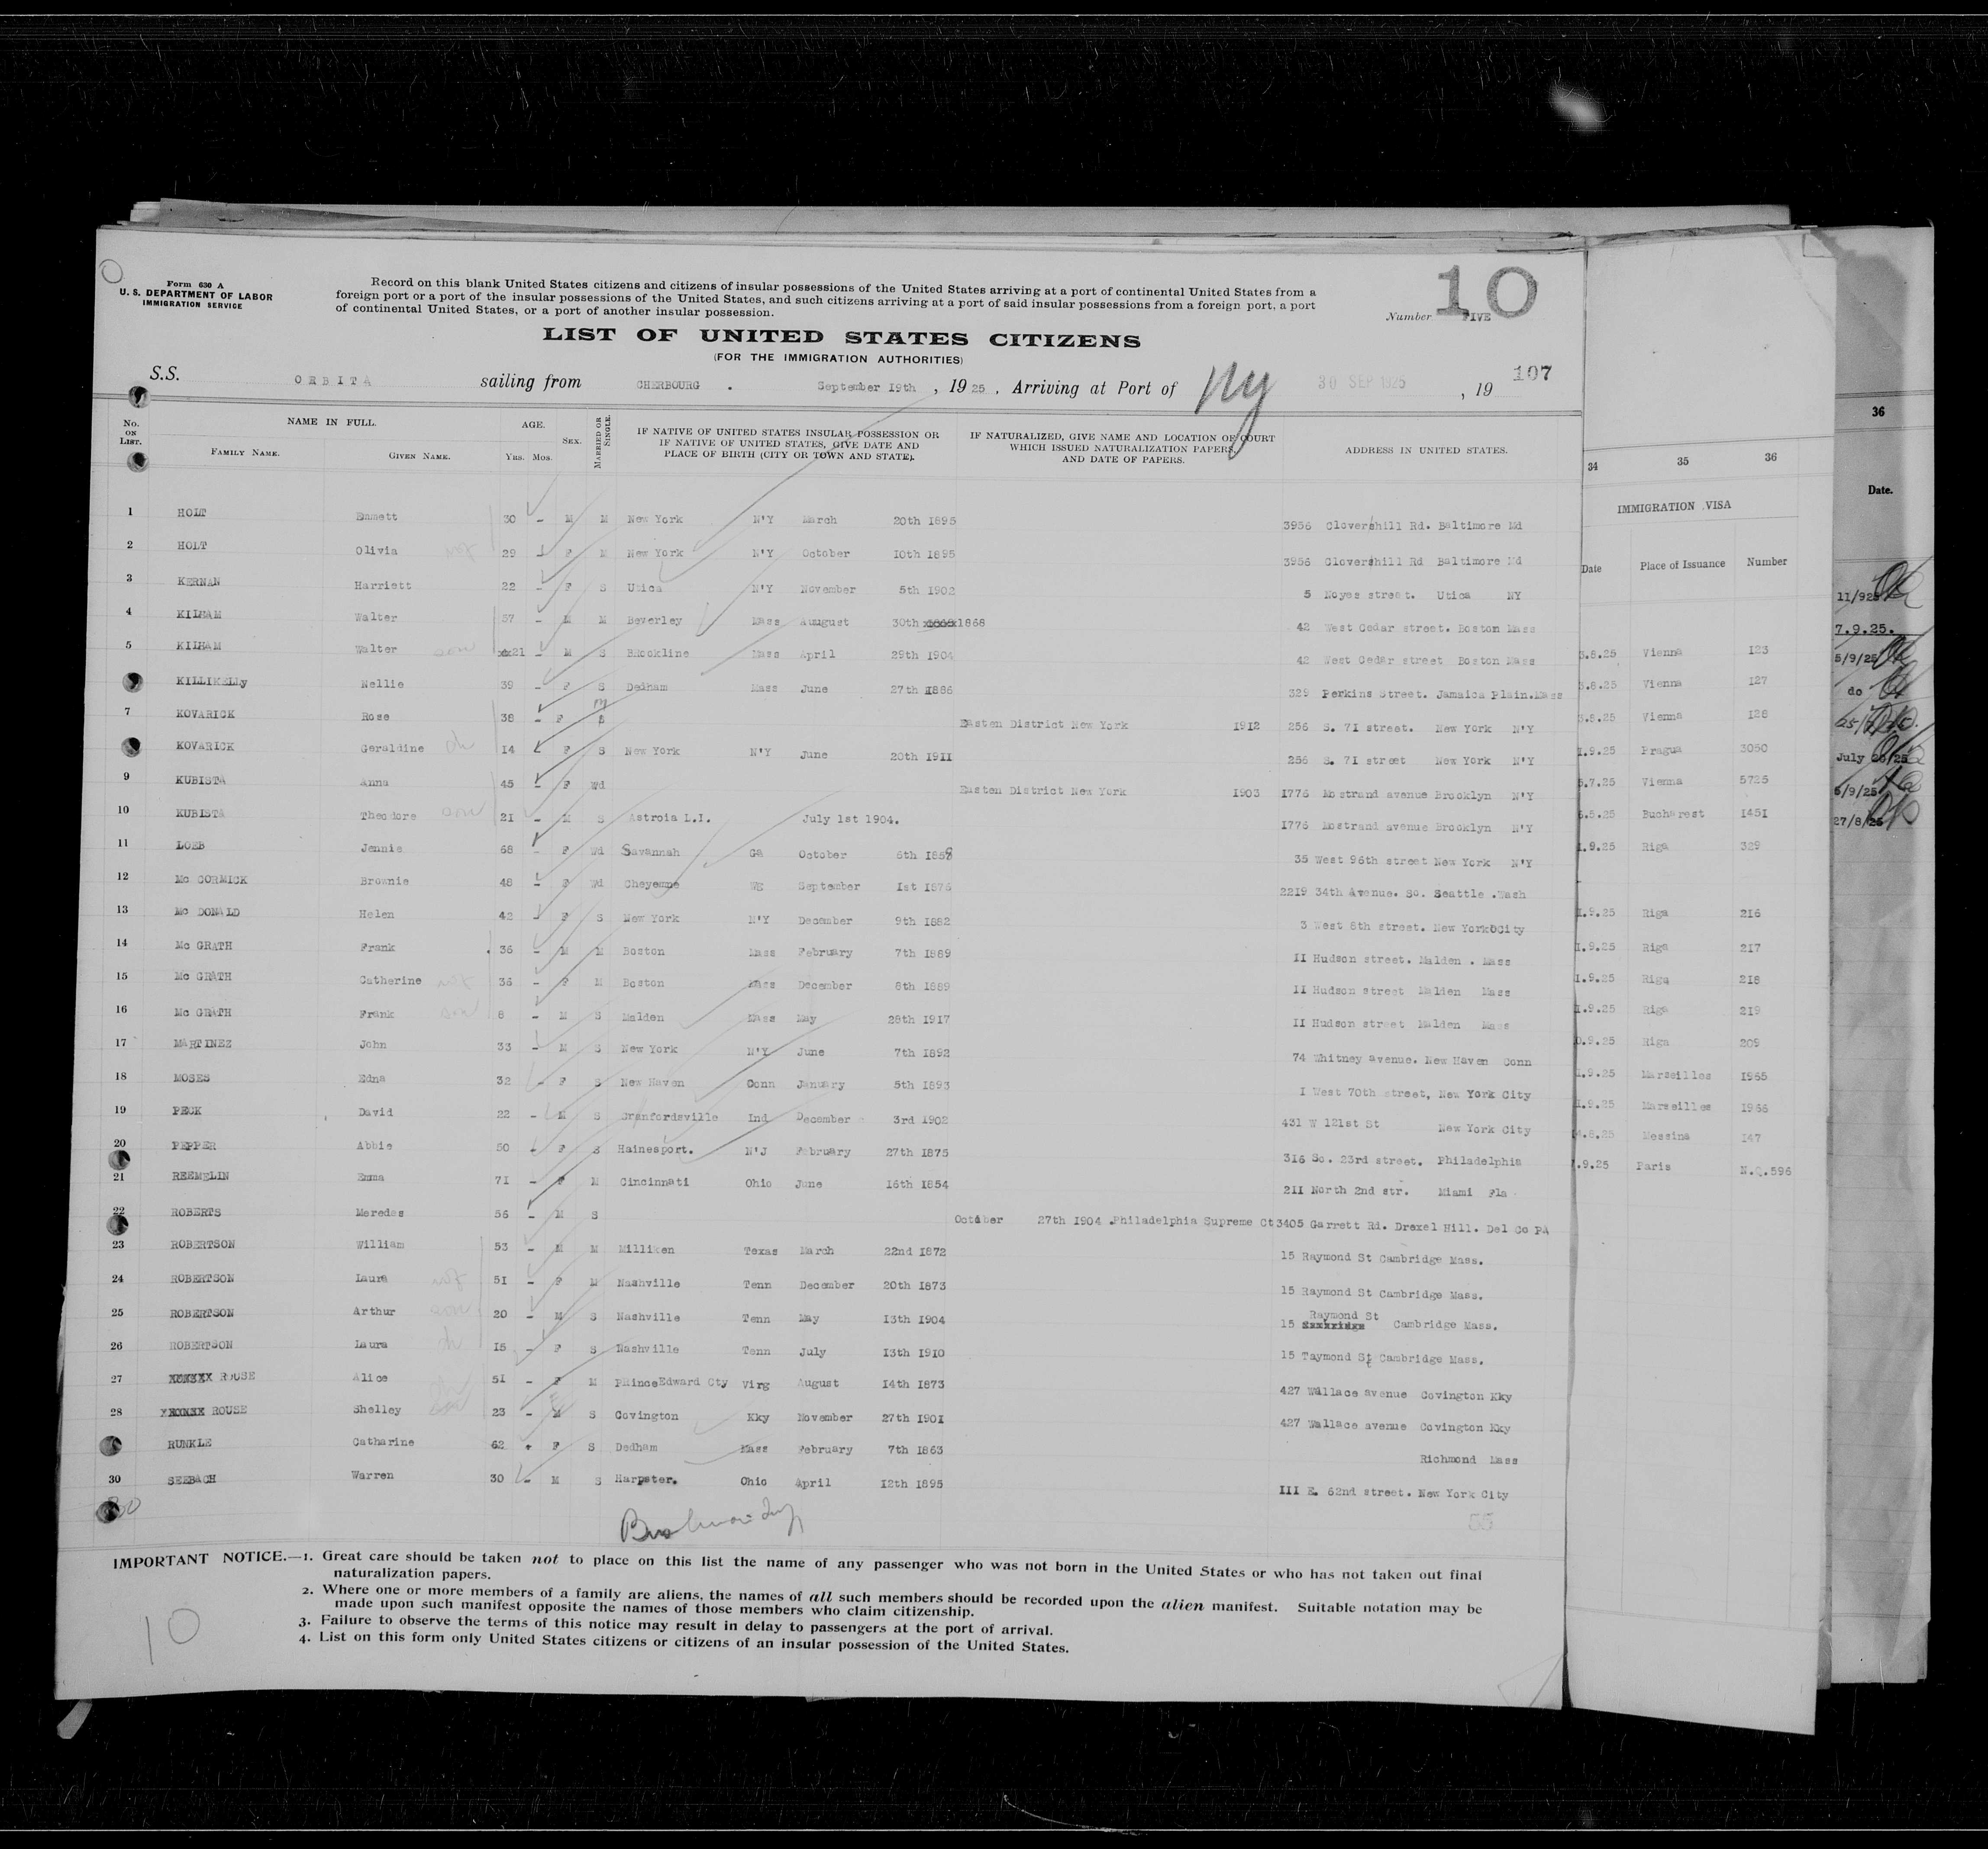 Form 630 A
U. S. DEPARTMENT OF LABOR
IMMIGRATION SERVICE
Record on this blank United States citizens and citizens of insular possessions of the United States arriving at a port of continental United States from a
foreign port or a port of the insular possessions of the United States, and such citizens arriving at a port of said insular possessions from a foreign port, a port
of continental United States, or a port of another insular possession.
10
Number FIVE
LIST OF UNITED STATES CITIZENS
(FOR THE IMMIGRATION AUTHORITIES)
S.S. ORBITA sailing from CHERBOURG . September 19th , 1925 , Arriving at Port of Ny 30 SEP 1925 , 19 107
No. ON LIST. NAME IN FULL. AGE. SEX. MARRIED OR SINGLE. IF NATIVE OF UNITED STATES INSULAR POSSESSION OR IF NATIVE OF UNITED STATES, GIVE DATE AND PLACE OF BIRTH (CITY OR TOWN AND STATE). IF NATURALIZED, GIVE NAME AND LOCATION OF COURT WHICH ISSUED NATURALIZATION PAPERS, AND DATE OF PAPERS. ADDRESS IN UNITED STATES.
FAMILY NAME. GIVEN NAME. YRS. MOS.
1 HOLT Emmett 30 - M M New York N'Y March 20th 1895 3956 Cloverhill Rd. Baltimore Md
2 HOLT Olivia wf 29 - F M New York N'Y October 10th 1895 3956 Cloverhill Rd Baltimore Md
3 KERNAN Harriett 22 - F S Utica N'Y November 5th 1902 5 Noyes street. Utica NY
4 KILHAM Walter 57 - M M Beverley Mass Auugust 30th 1868 42 West Cedar street. Boston Mass
5 KILHAM Walter son 21 - M S BRookline Mass April 29th 1904 42 West Cedar street Boston Mass
KILLIKELLy Nellie 39 - F S Dedham Mass June 27th 1886 329 Perkins Street. Jamaica Plain.Mass
7 KOVARICK Rose 38 - F M S Easten District New York 1912 256 S. 71 street. New York N'Y
KOVARICK Geraldine dh 14 - F S New York N'Y June 20th 1911 256 S. 71 street New York N'Y
9 KUBISTA Anna 45 - F Wd Easten District New York 1903 1776 Nostrand avenue Brooklyn N'Y
10 KUBISTA Theodore son 21 - M S Astroia L.I. July 1st 1904. 1776 Nostrand avenue Brooklyn N'Y
11 LOEB Jennie 68 - F Wd Savannah Ga October 6th 1858 35 West 96th street New York N'Y
12 Mc CORMICK Brownie 48 - F Wd Cheyenne September 1st 1876 2219 34th Avenue. So. Seattle .Wash
13 Mc DONALD Helen 42 - F S New York N'Y December 9th 1882 3 West 8th street. New York City
14 Mc GRATH Frank 36 - M M Boston Mass February 7th 1889 11 Hudson street. Malden . Mass
15 Mc GRATH Catherine wf 36 - F M Boston Mass December 8th 1889 11 Hudson street Malden Mass
16 Mc GRATH Frank son 8 - M S Malden Mass May 28th 1917 11 Hudson street Malden Mass
17 MARTINEZ John 33 - M S New York N'Y June 7th 1892 74 Whitney avenue. New Haven Conn
18 MOSES Edna 32 - F S New Haven Conn January 5th 1893 1 West 70th street, New York City
19 PECK David 22 - M S Cranfordsville Ind December 3rd 1902 431 W 121st St New York City
20 PEPPER Abbie 50 - F S Hainesport. N'J February 27th 1875 316 So. 23rd street. Philadelphia
21 REEMELIN Emma 71 - F M Cincinnati Ohio June 16th 1854 211 North 2nd str. Miami Fla
22 ROBERTS Meredes 56 - M S October 27th 1904 .Philadelphia Supreme Ct 3405 Garrett Rd. Drexel Hill. Del Co PA
23 ROBERTSON William 53 - M M Milliken Texas March 22nd 1872 15 Raymond St Cambridge Mass.
24 ROBERTSON Laura wf 51 - F M Nashville Tenn December 20th 1873 15 Raymond St Cambridge Mass.
25 ROBERTSON Arthur son 20 - M S Nashville Tenn May 13th 1904 15 Raymond St Cambridge Mass.
26 ROBERTSON Laura dh 15 - F S Nashville Tenn July 13th 1910 15 Taymond St Cambridge Mass.
27 ROUSE Alice 51 - F M PRinceEdward Cty Virg August 14th 1873 427 Wallace avenue Covington Kky
28 ROUSE Shelley 23 - M S Covington Kky November 27th 1901 427 Wallace avenue Covington Kky
RUNKLE Catharine 62 - F S Dedham Mass February 7th 1863 Richmond Mass
30 SEEBACH Warren 30 - M S Harpster. Ohio April 12th 1895 111 E. 62nd street. New York City
30
55
IMPORTANT NOTICE.—1. Great care should be taken not to place on this list the name of any passenger who was not born in the United States or who has not taken out final
naturalization papers.
2. Where one or more members of a family are aliens, the names of all such members should be recorded upon the alien manifest. Suitable notation may be
made upon such manifest opposite the names of those members who claim citizenship.
3. Failure to observe the terms of this notice may result in delay to passengers at the port of arrival.
4. List on this form only United States citizens or citizens of an insular possession of the United States.
10
34 35 36
IMMIGRATION VISA
Date Place of Issuance Number
.8.25 Vienna 123
.8.25 Vienna 127
.8.25 Vienna 128
.9.25 Pragua 3050
.7.25 Vienna 5725
.5.25 Bucharest 1451
.9.25 Riga 329
.9.25 Riga 216
.9.25 Riga 217
.9.25 Riga 218
.9.25 Riga 219
.9.25 Riga 209
.9.25 Marseilles 1965
.9.25 Marseilles 1966
.8.25 Messina 147
.9.25 Paris N.Q.596
36
Date.
11/925
7.9.25.
5/9/25
do
July 28/25
5/9/25
27/8/25